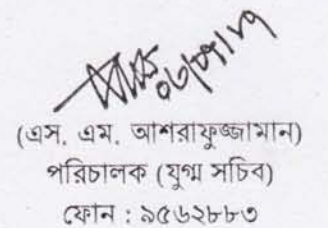 ০৬/০৭/১৭
(এস. এম. আশরাফুজ্জামান)
পরিচালক (যুগ্ম সচিব)
ফোন : ৯৫৬২৮৮৩